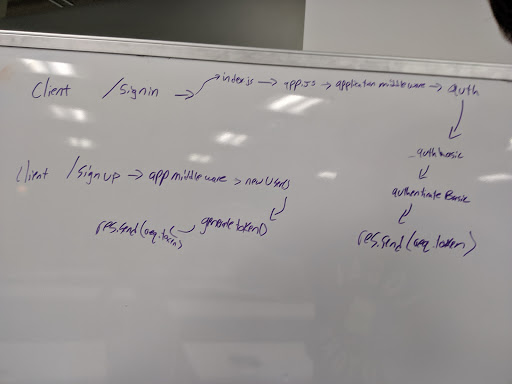 Client /Signin → index.js → app.js → application middleware → auth
_authBasic
authenticateBasic
res.send(req.token)
Client /Signup → app middleware > new User()
generateToken()
res.send(req.token)